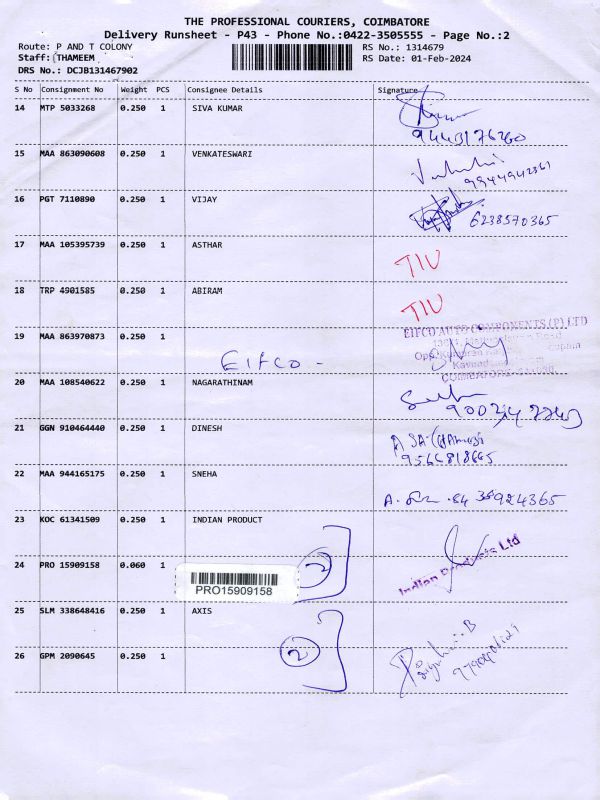 THE PROFESSIONAL COURIERS, COIMBATORE
Delivery Runsheet - P43 - Phone No.:0422-3505555 - Page No.:2
Route: P AND T COLONY
RS No.: 1314679
Staff: THAMEEM
RS Date: 01-Feb-2024
DRS No.: DCJB131467902
S No Consignment No Weight PCS Consignee Details Signature
14 MTP 5033268 0.250 1 SIVA KUMAR
15 MAA 863090608 0.250 1 VENKATESWARI
9944942361
16 PGT 7110890 0.250 1 VIJAY
6238570365
17 MAA 105395739 0.250 1 ASTHAR
TIV
18 TRP 4901585 0.250 1 ABIRAM
TIV
EIFCO AUTO COMPONENTS (P) LTD
19 MAA 863970873 0.250 1
EIFCO -
20 MAA 108540622 0.250 1 NAGARATHINAM
21 GGN 910464440 0.250 1 DINESH
22 MAA 944165175 0.250 1 SNEHA
23 KOC 61341509 0.250 1 INDIAN PRODUCT
24 PRO 15909158 0.060 1
2
Indian Products Ltd
PRO15909158
25 SLM 338648416 0.250 1 AXIS
26 GPM 2090645 0.250 1
2